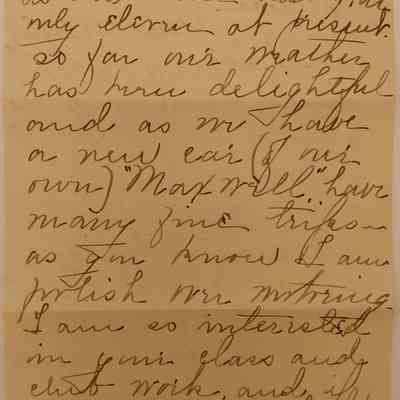 only eleven at present.
so far our weather
has been delightful
and as we have
a new car (of our
own) "Maxwell," have
many fine trips—
as you know I am
foolish over motoring.
I am so interested
in your class and
club work, and, if